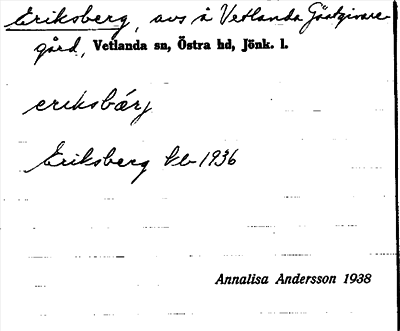 Eriksberg, avs å Vetlanda Gästgivare-
gård, Vetlanda sn, Östra hd, Jönk. l.
eriksbárj
Eriksberg kb 1936
Annalisa Andersson 1938